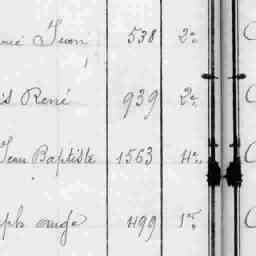 Jean 538 2e
is René 939 2e
Jean Baptiste 1563 4e
ph ange 499 1er